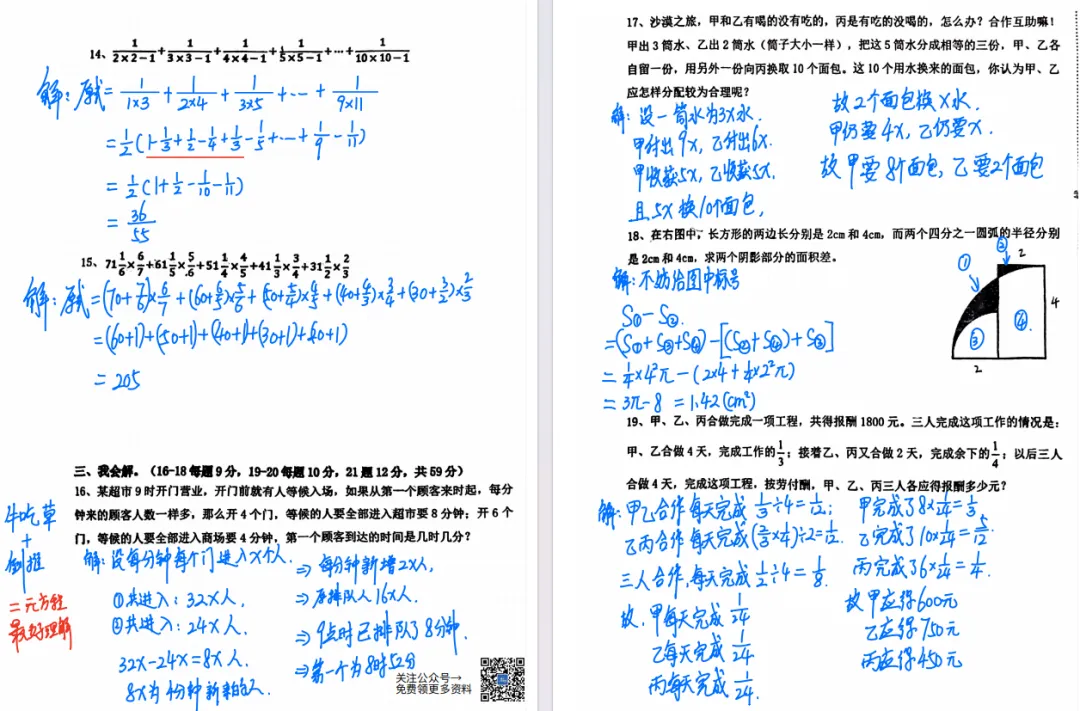 14、1/(2×2−1)+1/(3×3−1)+1/(4×4−1)+1/(5×5−1)+…+1/(10×10−1)
解：原式=1/(1×3)+1/(2×4)+1/(3×5)+…+1/(9×11)
=1/2(1-1/3+1/2-1/4+1/3-1/5+…+1/9-1/11)
=1/2(1+1/2-1/10-1/11)
=36/55
15、71 1/6×6/7+61 1/5×5/6+51 1/4×4/5+41 1/3×3/4+31 1/2×2/3
解：原式=(70+7/6)×6/7+(60+6/5)×5/6+(50+5/4)×4/5+(40+4/3)×3/4+(30+3/2)×2/3
=(60+1)+(50+1)+(40+1)+(30+1)+(20+1)
=205
三、我会解。（16-18每题9分，19-20每题10分，21题12分，共59分）
16、某超市9时开门营业，开门前就有人等候入场，如果从第一个顾客来时起，每分
钟来的顾客人数一样多，那么开4个门，等候的人要全部进入超市要8分钟；开6个
门，等候的人要全部进入商场要4分钟，第一个顾客到达的时间是几时几分？
牛吃草
+
倒推
二元方程
最好理解
解：设每分钟每个门进入x个人
①共进入：32x人，
②共进入：24x人．
32x-24x=8x人．
8x为4分钟新来的人．
⇒每分钟新增2x人，
⇒原排队人16x人．
⇒9点时已排队了8分钟．
⇒第一个为8时52分
关注公众号→
免费领更多资料
17、沙漠之旅，甲和乙有喝的没有吃的，丙是有吃的没喝的，怎么办？合作互助嘛！
甲出3筒水、乙出2筒水（筒子大小一样），把这5筒水分成相等的三份，甲、乙各
自留一份，用另外一份向丙换取10个面包。这10个用水换来的面包，你认为甲、乙
应怎样分配较为合理呢？
解：设一筒水为3x水．
甲付出9x，乙付出6x．
甲收获5x，乙收获5x．
且5x换10个面包，
故2个面包换x水．
甲仍要4x，乙仍要x．
故甲要8个面包，乙要2个面包
18、在右图中，长方形的两边长分别是2cm和4cm，而两个四分之一圆弧的半径分别
是2cm和4cm，求两个阴影部分的面积差。
解：不妨给图中标号
S①-S②
=(S①+S③+S④)-[(S②+S④)+S③]
=1/4×4²π-(2×4+1/4×2²π)
=3π-8=1.42(cm²)
①
②
2
③
④
4
2
19、甲、乙、丙合做完成一项工程，共得报酬1800元。三人完成这项工作的情况是：
甲、乙合做4天，完成工作的1/3；接着乙、丙又合做2天，完成余下的1/4；以后三人
合做4天，完成这项工程，按劳付酬，甲、乙、丙三人各应得报酬多少元？
解：甲乙合作每天完成1/3÷4=1/12；
乙丙合作每天完成(2/3×1/4)÷2=1/12．
三人合作，每天完成1/2÷4=1/8．
故，甲每天完成1/24
乙每天完成1/24
丙每天完成1/24．
甲完成了8×1/24=1/3
乙完成了10×1/24=5/12
丙完成了6×1/24=1/4．
故甲应得600元
乙应得750元
丙应得450元